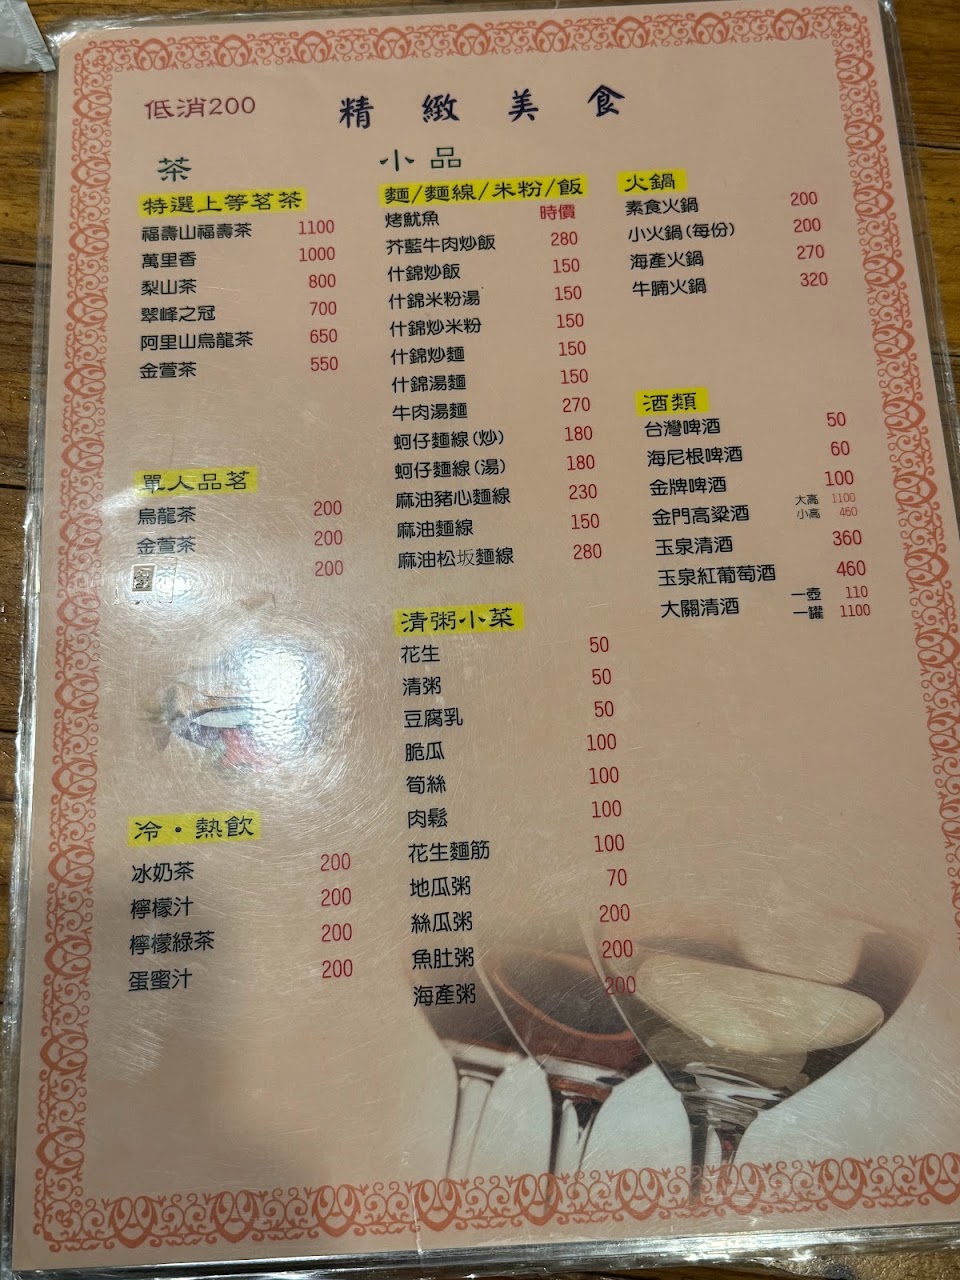 低消200
精緻美食
茶
特選上等茗茶
福壽山福壽茶 1100
萬里香 1000
梨山茶 800
翠峰之冠 700
阿里山烏龍茶 650
金萱茶 550
單人品茗
烏龍茶 200
金萱茶 200
200
冷・熱飲
冰奶茶 200
檸檬汁 200
檸檬綠茶 200
蛋蜜汁 200
小品
麵/麵線/米粉/飯
烤魷魚 時價
芥藍牛肉炒飯 280
什錦炒飯 150
什錦米粉湯 150
什錦炒米粉 150
什錦炒麵 150
什錦湯麵 150
牛肉湯麵 270
蚵仔麵線(炒) 180
蚵仔麵線(湯) 180
麻油豬心麵線 230
麻油麵線 150
麻油松坂麵線 280
清粥小菜
花生 50
清粥 50
豆腐乳 50
脆瓜 100
筍絲 100
肉鬆 100
花生麵筋 100
地瓜粥 70
絲瓜粥 200
魚肚粥 200
海產粥 200
火鍋
素食火鍋 200
小火鍋(每份) 200
海產火鍋 270
牛腩火鍋 320
酒類
台灣啤酒 50
海尼根啤酒 60
金牌啤酒 100
金門高粱酒 大高 1100
小高 460
玉泉清酒 360
玉泉紅葡萄酒 460
大關清酒 一壺 110
一罐 1100